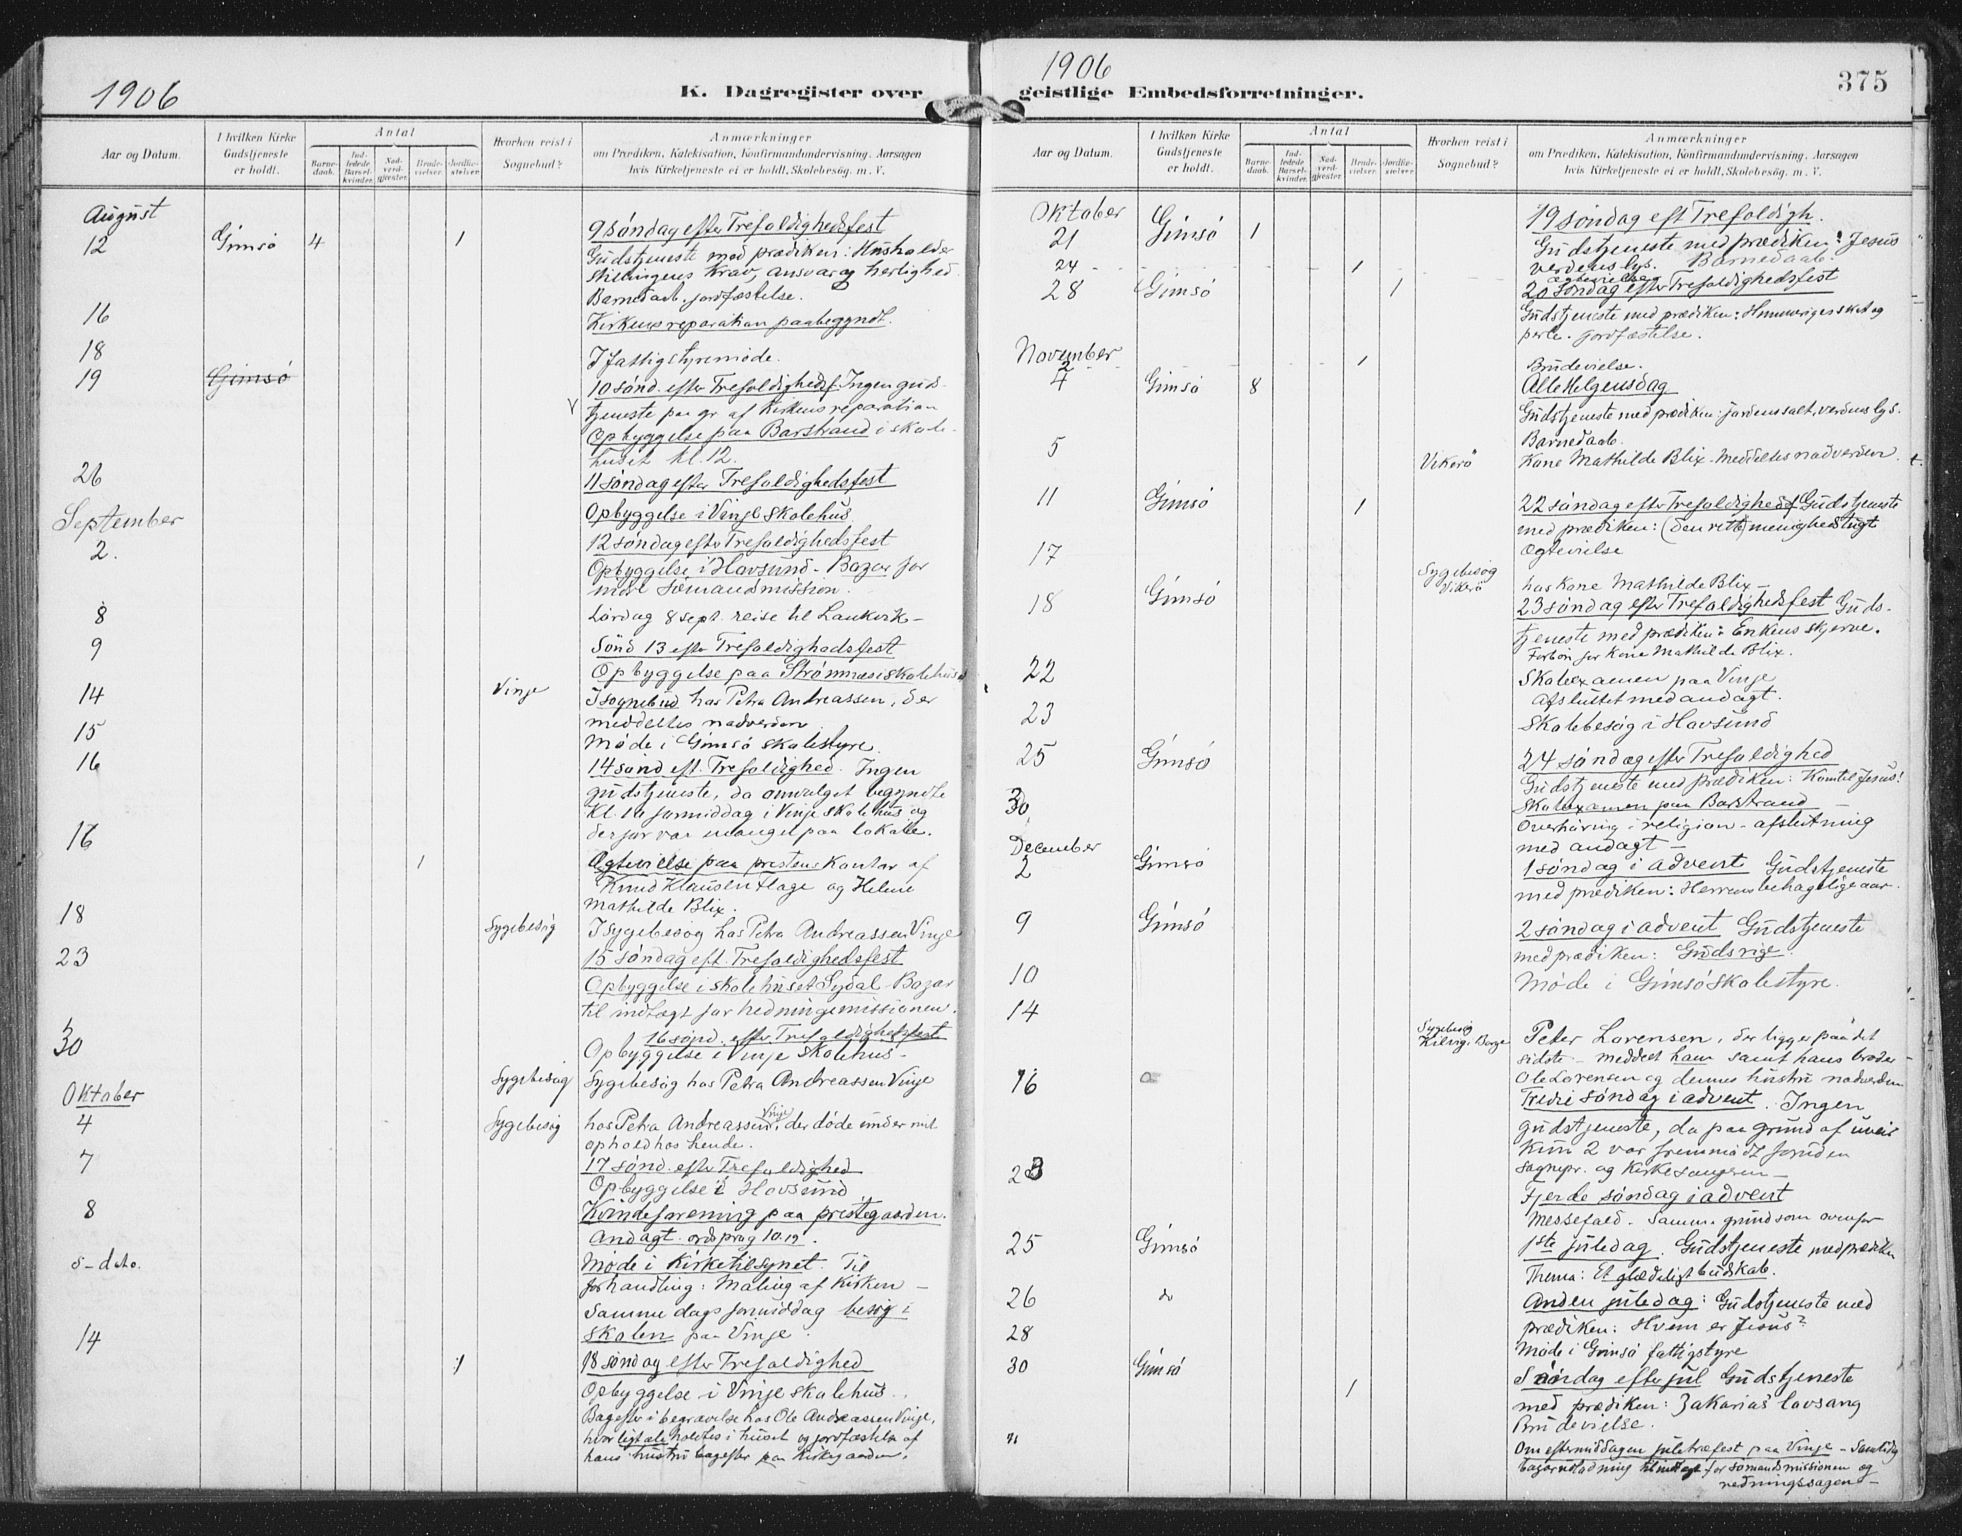 1906
K. Dagregister over
Aar og Datum.
I hvilken Kirke Gudstjeneste er holdt.
Antal
Barnedaab.
Indledede Barselkvinder.
Nadverdgjester.
Brudevielser.
Jordfæstelser
Hvorhen reist i Sognebud?
Anmærkninger
om Prædiken, Katekisation, Konfirmandundervisning. Aarsagen
hvis Kirketjeneste ei er holdt, Skolebesøg. m. V.
August
12 Gimsø 4 1 9 søndag efter Trefoldighedsfest
Gudstjeneste med prædiken: Husholder
stillingens Krav, ansvar og herlighed.
Barnedaab. jordfæstelse.
16 Kirkens reparation paabegyndt.
18 I fattigstyremøde.
19 Gimsø 10 sønd. efter Trefoldighedsf. Ingen guds-
tjeneste paa gr. af Kirkens reparation
Opbyggelse paa Barstrand i skole-
huset kl. 12.
26 11 søndag efter Trefoldighedsfest
Opbyggelse i Vinje skolehus
September
2. 12 søndag efter Trefoldighedsfest
Opbyggelse i Hovsund - Bazar for
indl sømandsmission.
8 Lørdag 8 sept. reise til Laukvik -
9 Sønd 13 efter Trefoldighedsfest
Opbyggelse paa Strømnæs skolehus
14 Vinje I sognebud hos Petra Andreassen, der
meddeltes nadverden
15 Møde i Gimsø skolestyre.
16 14 sønd eft. Trefoldighed. Ingen
gudstjeneste, da omvalget begyndte
Kl. 10 formiddag i Vinje skolehus og
derfor var mangel paa lokale.
16 1 Ægtevielse paa prestens Kontor af
Knud Klausen Flage og Helene
Mathilde Blix.
18 Sygebesøg I sygebesøg hos Petra Andreassen Vinje
23 15 søndag eft. Trefoldighedsfest
Opbyggelse i skolehuset Sydal - Bazar
til indtægt for hedningemissionen.
30 16 sønd. efter Trefoldighedsfest
Opbyggelse i Vinje skolehus -
Sygebesøg Sygebesøg hos Petra Andreassen Vinje
Oktober
4 Sygebesøg hos Petra Andreassen, Vinje der døde under mit
ophold hos hende.
7 17 sønd. efter Trefoldighed
Opbyggelse i Hovsund
8 Kvindeforening paa prestegaarden.
Andagt ordsprog 10.19.
s - dato. Møde i Kirketilsynet. Til
forhandling: Maling af Kirken -
Samme dags formiddag besøg i
skolen paa Vinje.
14 1 18 søndag efter Trefoldighed
Opbyggelse i Vinje skolehus.
Bagefter i begravelse hos Ole Andreassen Vinje,
hvor ligtale holdtes i huset og jordfæstelse af
hans hustru bagefter paa Kirkegaarden.
1906
geistlige Embedsforretninger.
375
Aar og Datum.
I hvilken Kirke Gudstjeneste er holdt.
Antal
Barnedaab.
Indledede Barselkvinder.
Nadverdgjester.
Brudevielser.
Jordfæstelser
Hvorhen reist i Sognebud?
Anmærkninger
om Prædiken, Katekisation, Konfirmandundervisning, Aarsagen
hvis Kirketjeneste ei er holdt, Skolebesøg. m. V.
Oktober
21 Gimsø 1 19 søndag eft Trefoldigh.
Gudstjeneste med prædiken: Jesus
verdens lys. Barnedaab.
24 1 ægtevielse
28 Gimsø 1 20 søndag efter Trefoldighedsfest
Gudstjeneste med prædiken: Himmeriges skat og
perle. jordfæstelse.
November
2 1 Brudevielse.
4 Gimsø 8 Allehelgensdag
Gudstjeneste med prædiken: jordens salt, verdens lys.
Barnedaab.
5 Vikerø Kone Mathilde Blix - meddeltes nadverden
11 Gimsø 1 22 søndag efter Trefoldighedsf Gudstjeneste
med prædiken: (Den rette) menighedstugt
Ægtevielse
17 Sygebesøg Vikerø hos Kone Mathilde Blix -
18 Gimsø 23 søndag efter Trefoldighedsfest Guds-
tjeneste med prædiken: Enkens skjerve.
Forbøn for Kone Mathilde Blix.
22 Skolexamen paa Vinje
Afsluttet med andagt.
23 Skolebesøg i Hovsund
25 Gimsø 24 søndag efter Trefoldighed
Gudstjeneste med prædiken: Kom til Jesus!
30. Skolexamen paa Barstrand -
Overhøring i religion - afslutning
med andagt -
December
2 Gimsø 1 søndag i advent Gudstjeneste
med prædiken: Herrens behagelige aar.
9 Gimsø 2 søndag i advent Gudstjeneste
med prædiken: Guds rige.
10 Møde i Gimsø skolestyre.
14 Sygebesøg Kilvig, Borge Peter Lorensen, der ligger paa det
sidste - meddelt ham samt hans broder
Ole Lorensen og dennes hustru nadverden
16 Tredie søndag i advent. Ingen
gudstjeneste, da paa grund af uveir
Kun 2 var fremmødt foruden
sognepr. og Kirkesangeren -
23 Fjerde søndag i advent
Messefald. Samme grund som ovenfor
25 Gimsø 1ste juledag. Gudstjeneste med prædiken
Thema: Et glædeligt budskab.
26 do Anden juledag: Gudstjeneste med
prædiken: Hvem er Jesus?
28 Møde i Gimsø fattigstyre
30 Gimsø 1 Søndag efter jul Gudstjeneste
med prædiken: Zakarias' lovsang
Brudevielse.
" Om eftermiddagen juletræfest paa Vinje - samtidig
bazarudlodning til indtægt for sømandsmissionen og
redningssagen -